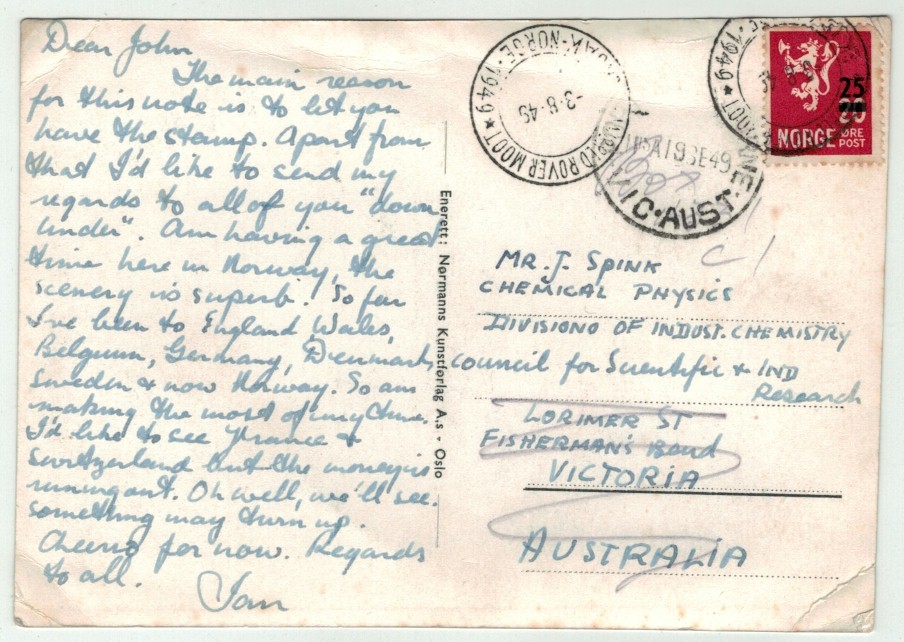 Dear John
The main reason
for this note is to let you
have the stamp. Apart from
that I'd like to send my
regards to all of you "down
under". Am having a great
time here in Norway, the
scenery is superb. So far
I've been to England Wales,
Belgium, Germany, Denmark,
Sweden & now Norway. So am
making the most of my time.
I'd like to see France &
Switzerland but the money is
running out. Oh well, we'll see.
Something may turn up.
Cheers for now. Regards
to all.
Ian
Enerett: Normanns Kunstforlag A.s - Oslo
NORGE · 1949 * WORLD ROVER MOOT *
-3.8.49
1949 * MOOT
19SE49
VIC·AUST.
25
20
NORGE ØRE
POST
C 1
MR. J. SPINK
CHEMICAL PHYSICS
DIVISIONO OF INDUST. CHEMISTRY
Council for Scientific & IND
Research
LORIMER ST
FISHERMAN'S Bend
VICTORIA
AUSTRALIA